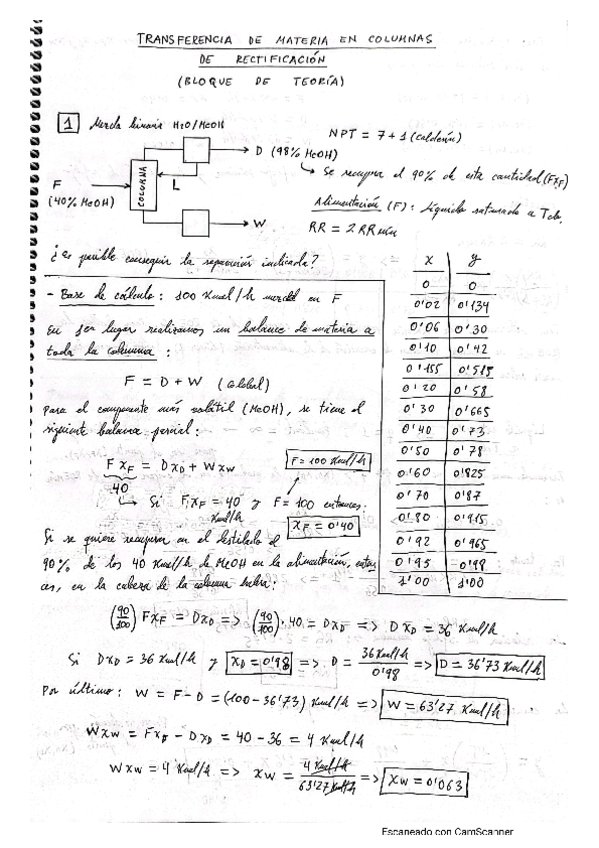 TRANSFERENCIA DE MATERIA EN COLUMNAS
DE RECTIFICACIÓN
(BLOQUE DE TEORÍA)
1 Mezcla binaria H2O/MeOH
NPT = 7 + 1 (calderín)
D (98% MeOH)
Se recupera el 90% de esta cantidad (FxF)
COLUMNA
L
F
(40% MeOH)
W
Alimentación (F): Líquido saturado a Teb.
RR = 2 RRmín
¿es posible conseguir la separación indicada?
x y
0 0
0'02 0'134
0'06 0'30
0'10 0'42
0'155 0'515
0'20 0'58
0'30 0'665
0'40 0'73
0'50 0'78
0'60 0'825
0'70 0'87
0'80 0'915
0'92 0'965
0'95 0'98
1'00 1'00
- Base de cálculo: 100 Kmol/h mezcla en F
En 1er lugar realizamos un balance de materia a
toda la columna:
F = D + W (Global)
Para el componente más volátil (MeOH), se tiene el
siguiente balance parcial:
F xF = D xD + W xW
F = 100 Kmol/h
40
Si F·xF = 40 Kmol/h y F = 100 entonces:
xF = 0'40
Si se quiere recuperar en el destilado el
90% de los 40 Kmol/h de MeOH en la alimentación, entonc
es, en la cabeza de la columna habrá:
(90/100) F xF = D xD => (90/100) · 40 = D xD => D xD = 36 Kmol/h
Si D xD = 36 Kmol/h y xD = 0'98 => D = 36 Kmol/h / 0'98 => D = 36'73 Kmol/h
Por último: W = F - D = (100 - 36'73) Kmol/h => W = 63'27 Kmol/h
W xW = F xF - D xD = 40 - 36 = 4 Kmol/h
W xW = 4 Kmol/h => xW = 4 Kmol/h / 63'27 Kmol/h => xW = 0'063
Escaneado con CamScanner